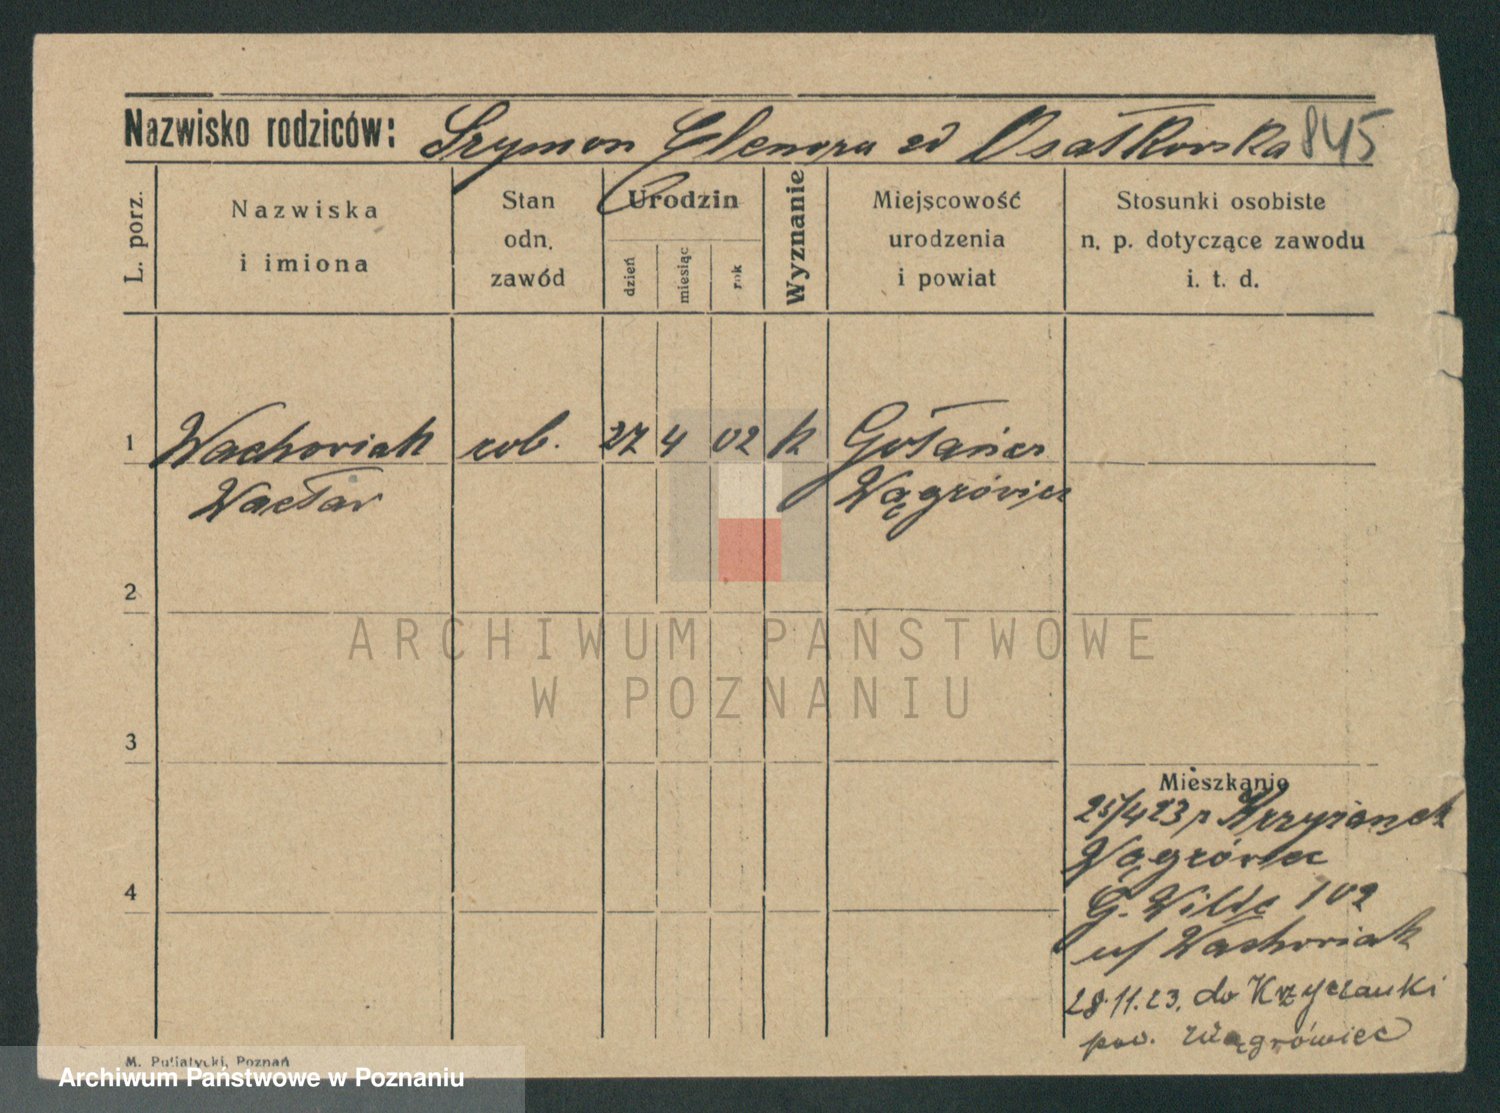 Nazwisko rodziców: Szymon Elenora zd Osatkowska 845
L. porz.
Nazwiska
i imiona
Stan
odn.
zawód
Urodzin
dzień
miesiąc
rok
Wyznanie
Miejscowość
urodzenia
i powiat
Stosunki osobiste
n. p. dotyczące zawodu
i. t. d.
1 Wachowiak rob. 27 4 02 k Gołańcz
Wacław Wągrówiec
2
ARCHIWUM PAŃSTWOWE
W POZNANIU
3
Mieszkanie
25/4 23 z
Wągrówiec
G. Wilda 102
u/ Wachowiak
4
28.11.23. do
pow. Wągrówiec
M. Putiatycki, Poznań
Archiwum Państwowe w Poznaniu